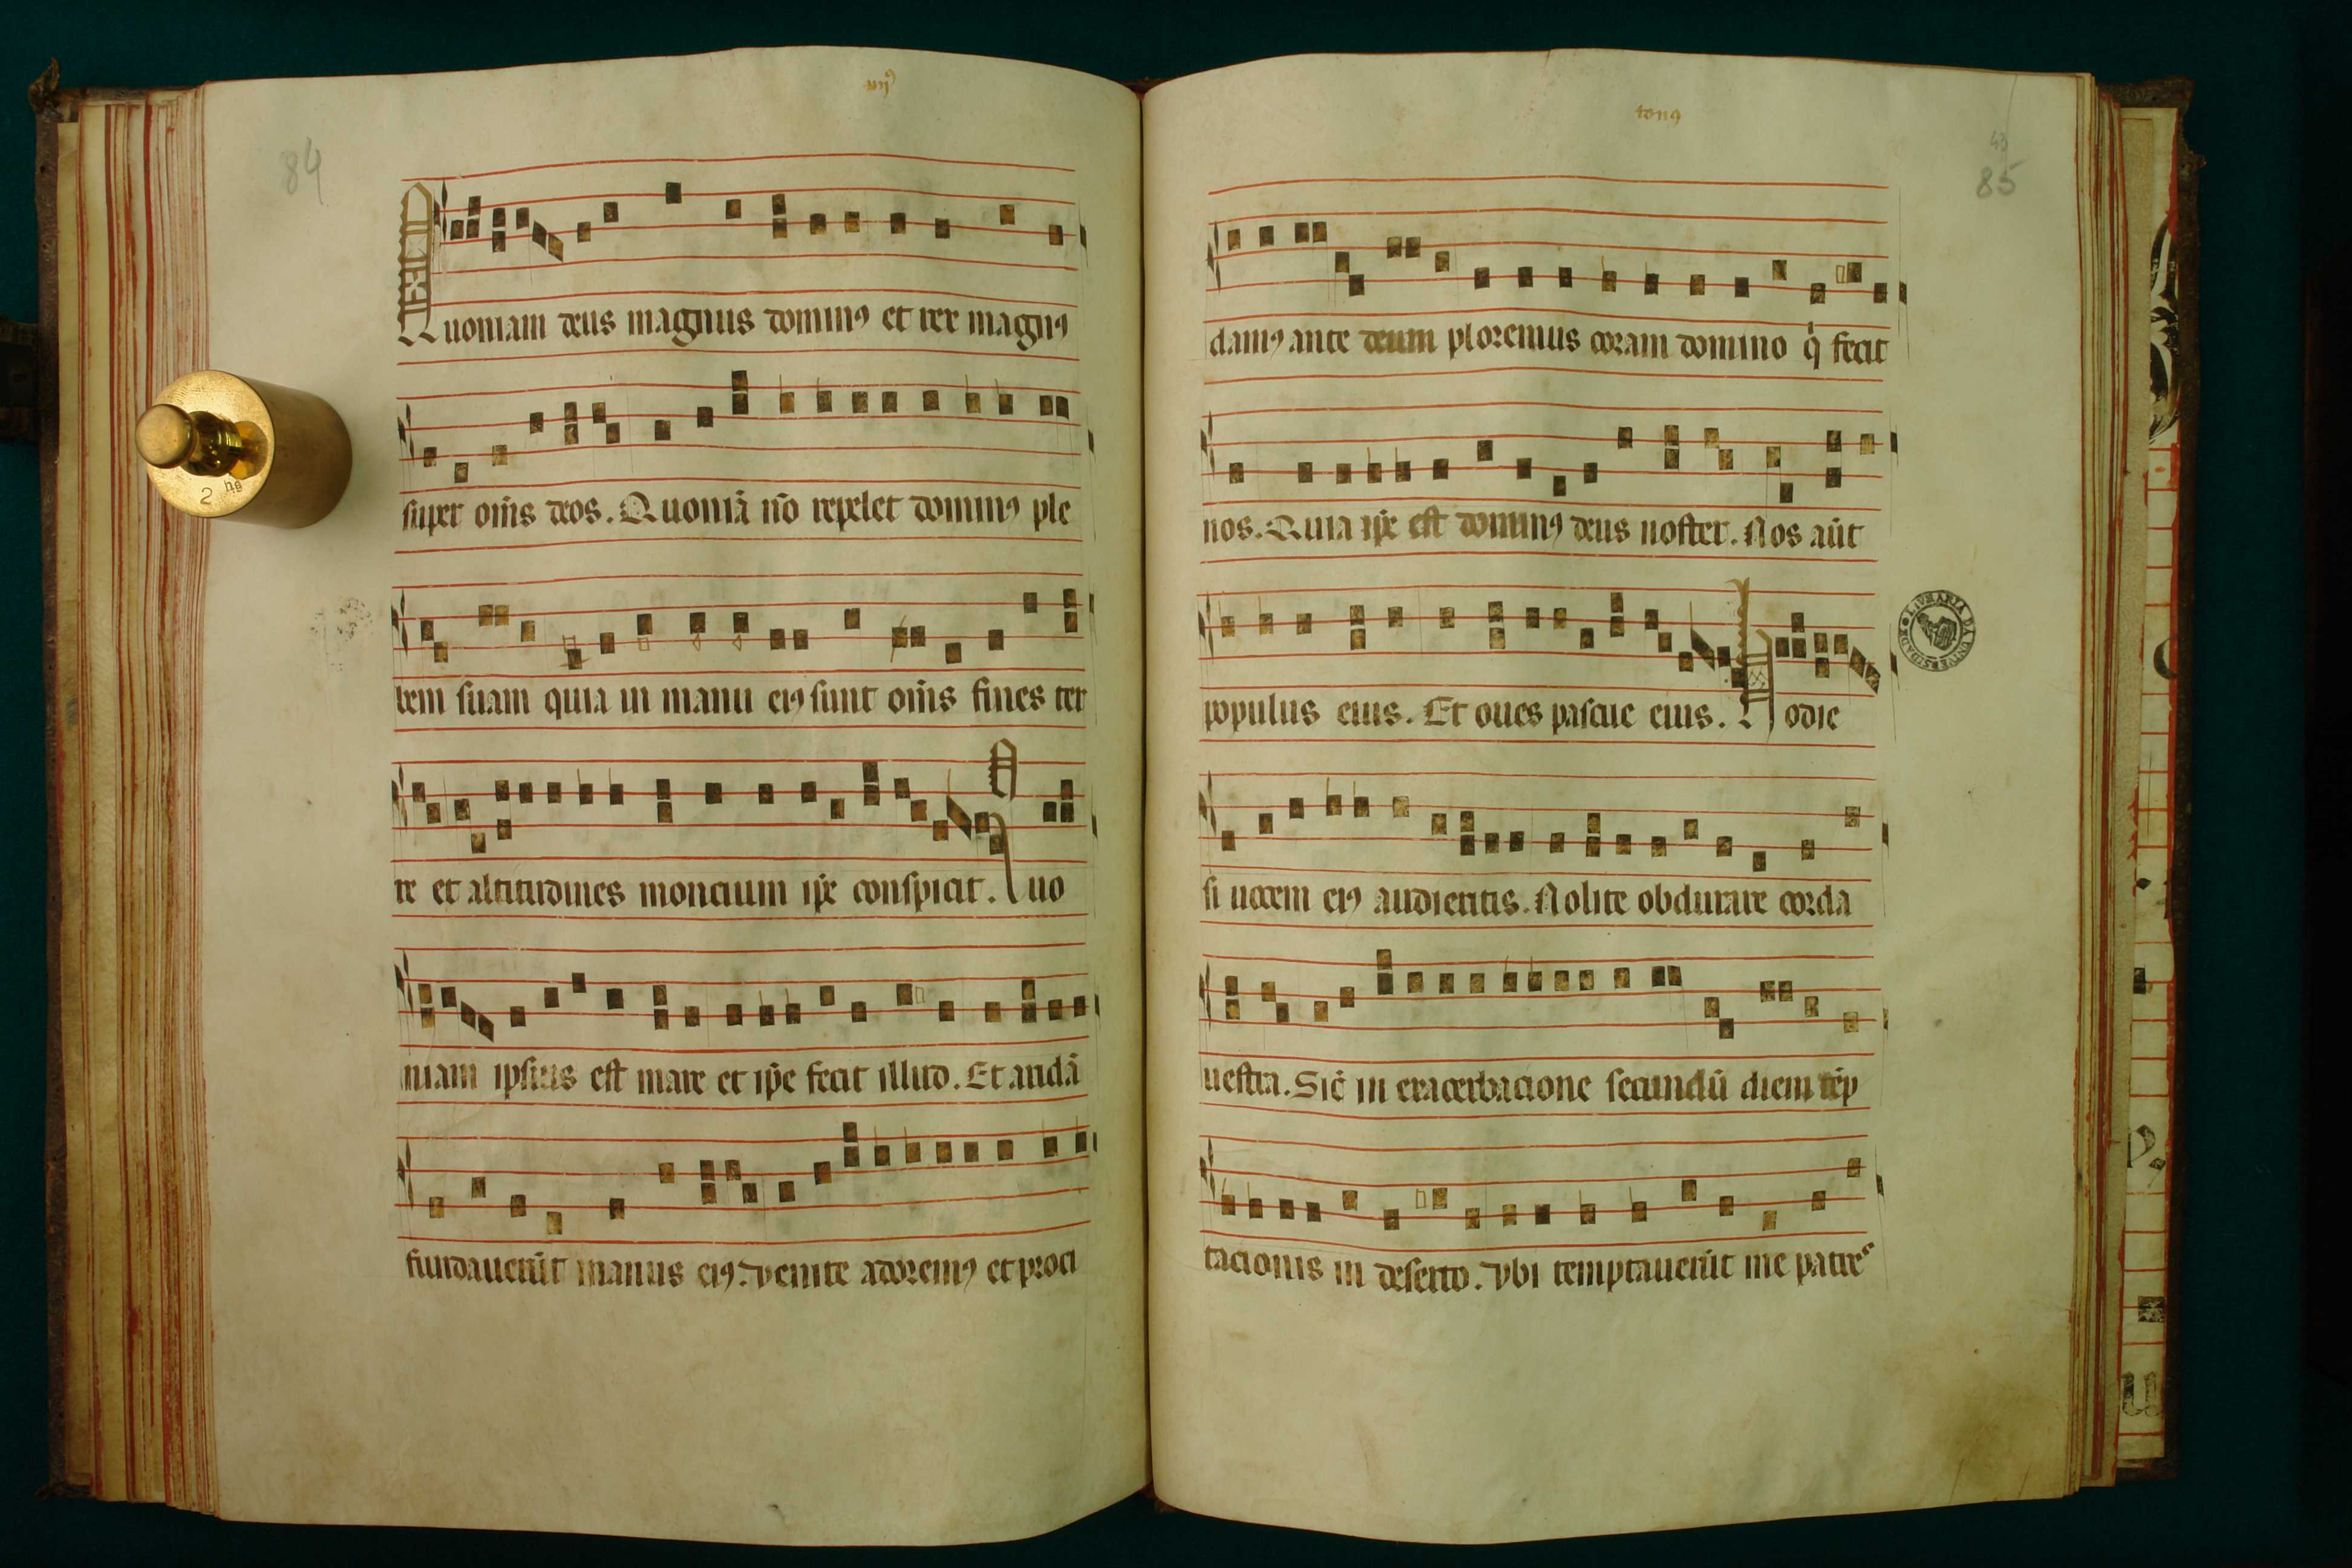 84
iiijꝰ
Quoniam deus magnus dominꝰ et rex magnꝰ
super om̄s deos. Quoniā nō repelet dominꝰ ple
bem suam quia in manu eiꝰ sunt om̄s fines ter
re et altitudines moncium ip̄e conspicit. Quo
niam ipsius est mare et ip̄e fecit illud. Et aridā
fundauerūt manus eiꝰ. venite adoremꝰ et proci
tonꝰ
43
85
damꝰ ante deum ploremus coram domino q̇ fecit
nos. Quia ip̄e est dominꝰ deus noster. Nos aūt
populus eius. Et oues pascue eius. Hodie
si uocem eiꝰ audieritis. Nolite obdurare corda
uestra. Sic̄ in exacerbacione secundū diem tēp
tacionis in deserto. vbi temptauerūt me patres
2 hg